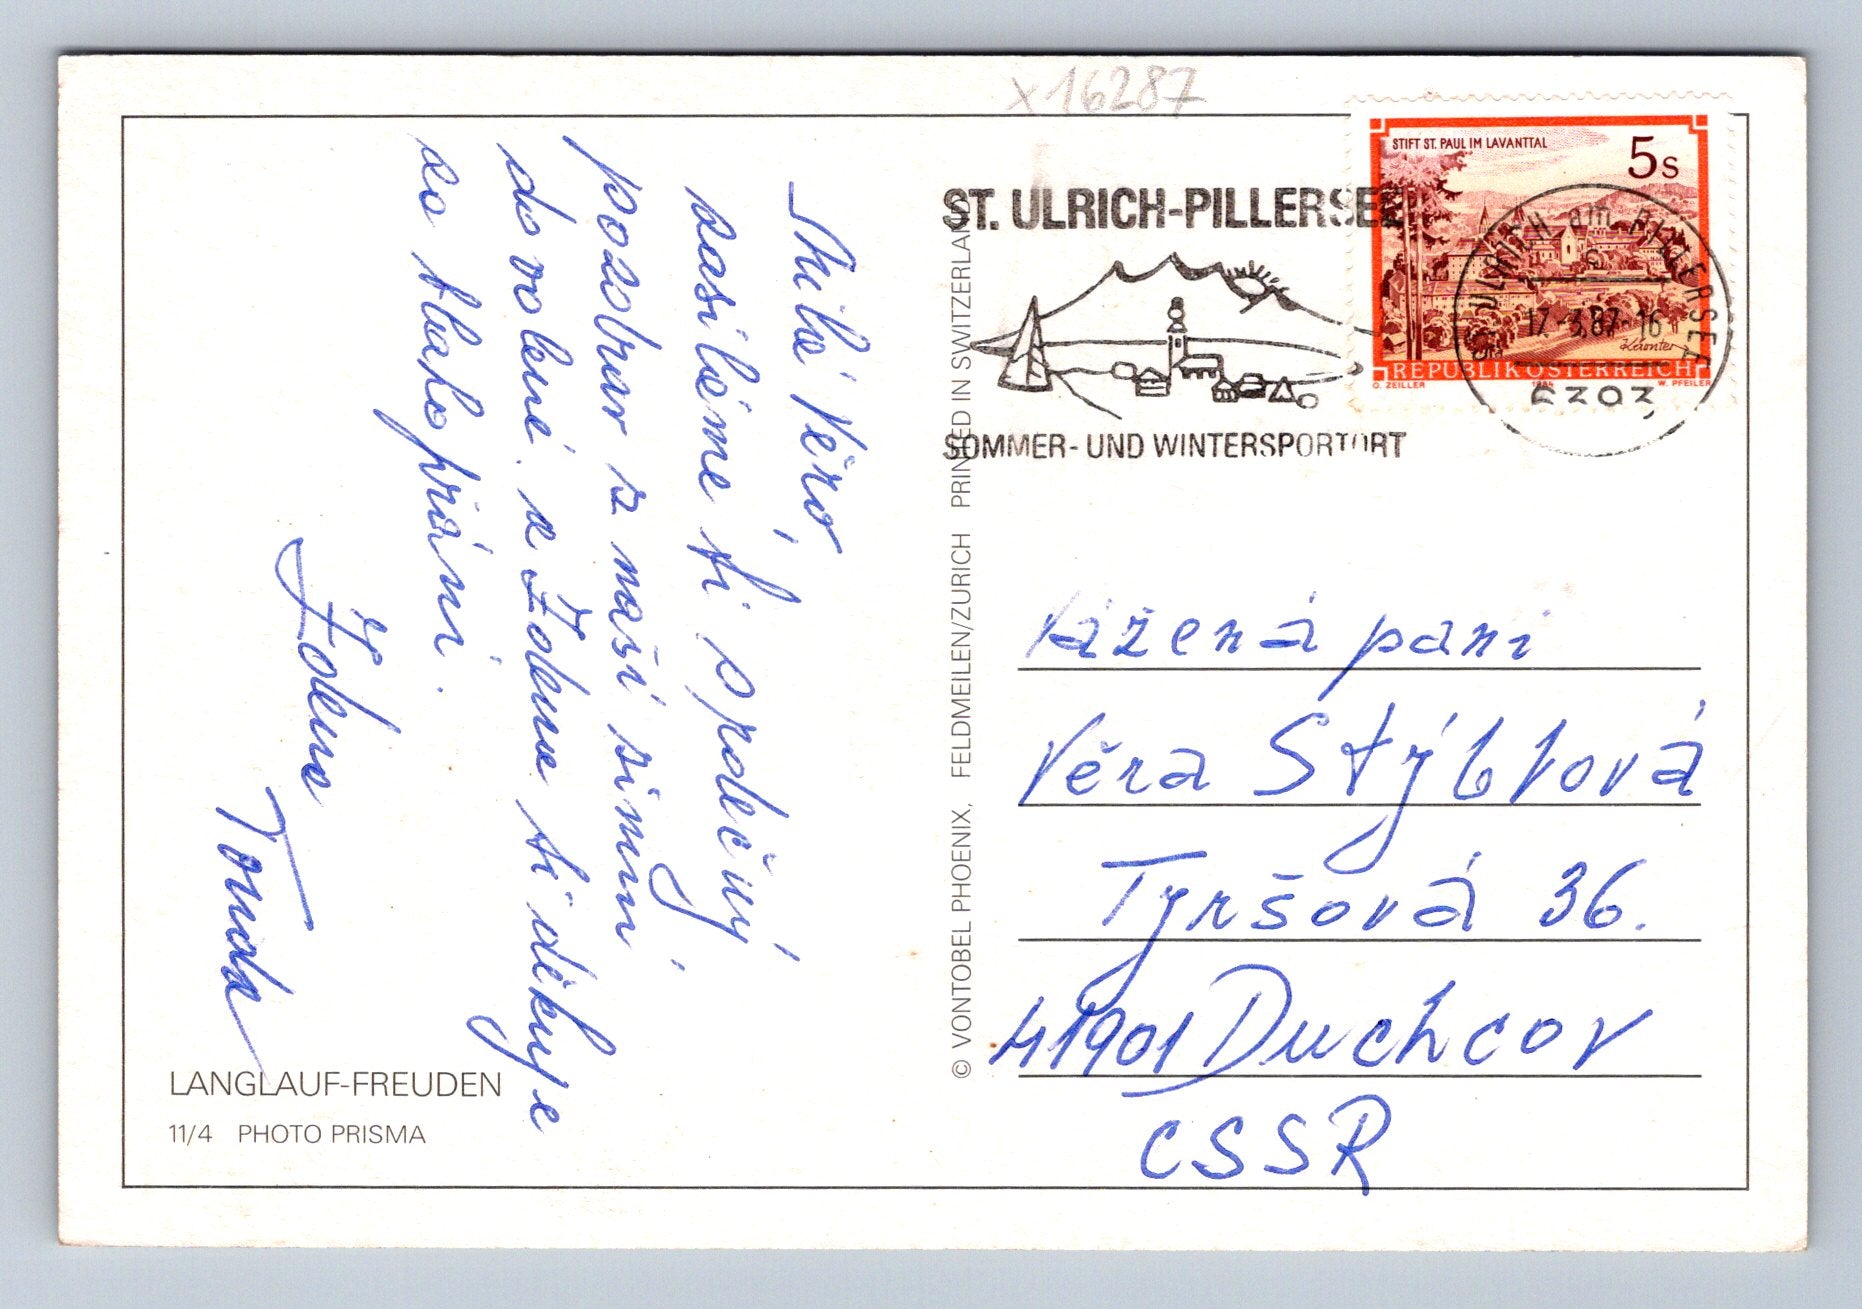 x16287
Milá Věro,
zasíláme ti společný
pozdrav z naší zimní
dovolené. a Ždena ti děkuje
za blahopřání.
Ždena
Tonda
LANGLAUF-FREUDEN
11/4 PHOTO PRISMA
© VONTOBEL PHOENIX, FELDMEILEN/ZURICH PRINTED IN SWITZERLAND
ST. ULRICH-PILLERSEE
SOMMER- UND WINTERSPORTORT
STIFT ST. PAUL IM LAVANTTAL
5s
Kärnten
REPUBLIK ÖSTERREICH
G. ZEILLER 1984 W. PFEILER
ST. ULRICH am PILLERSEE
17.-3.87-16
6393
Vážená paní
Věra Stýblová
Tyršová 36.
41901 Duchcov
CSSR